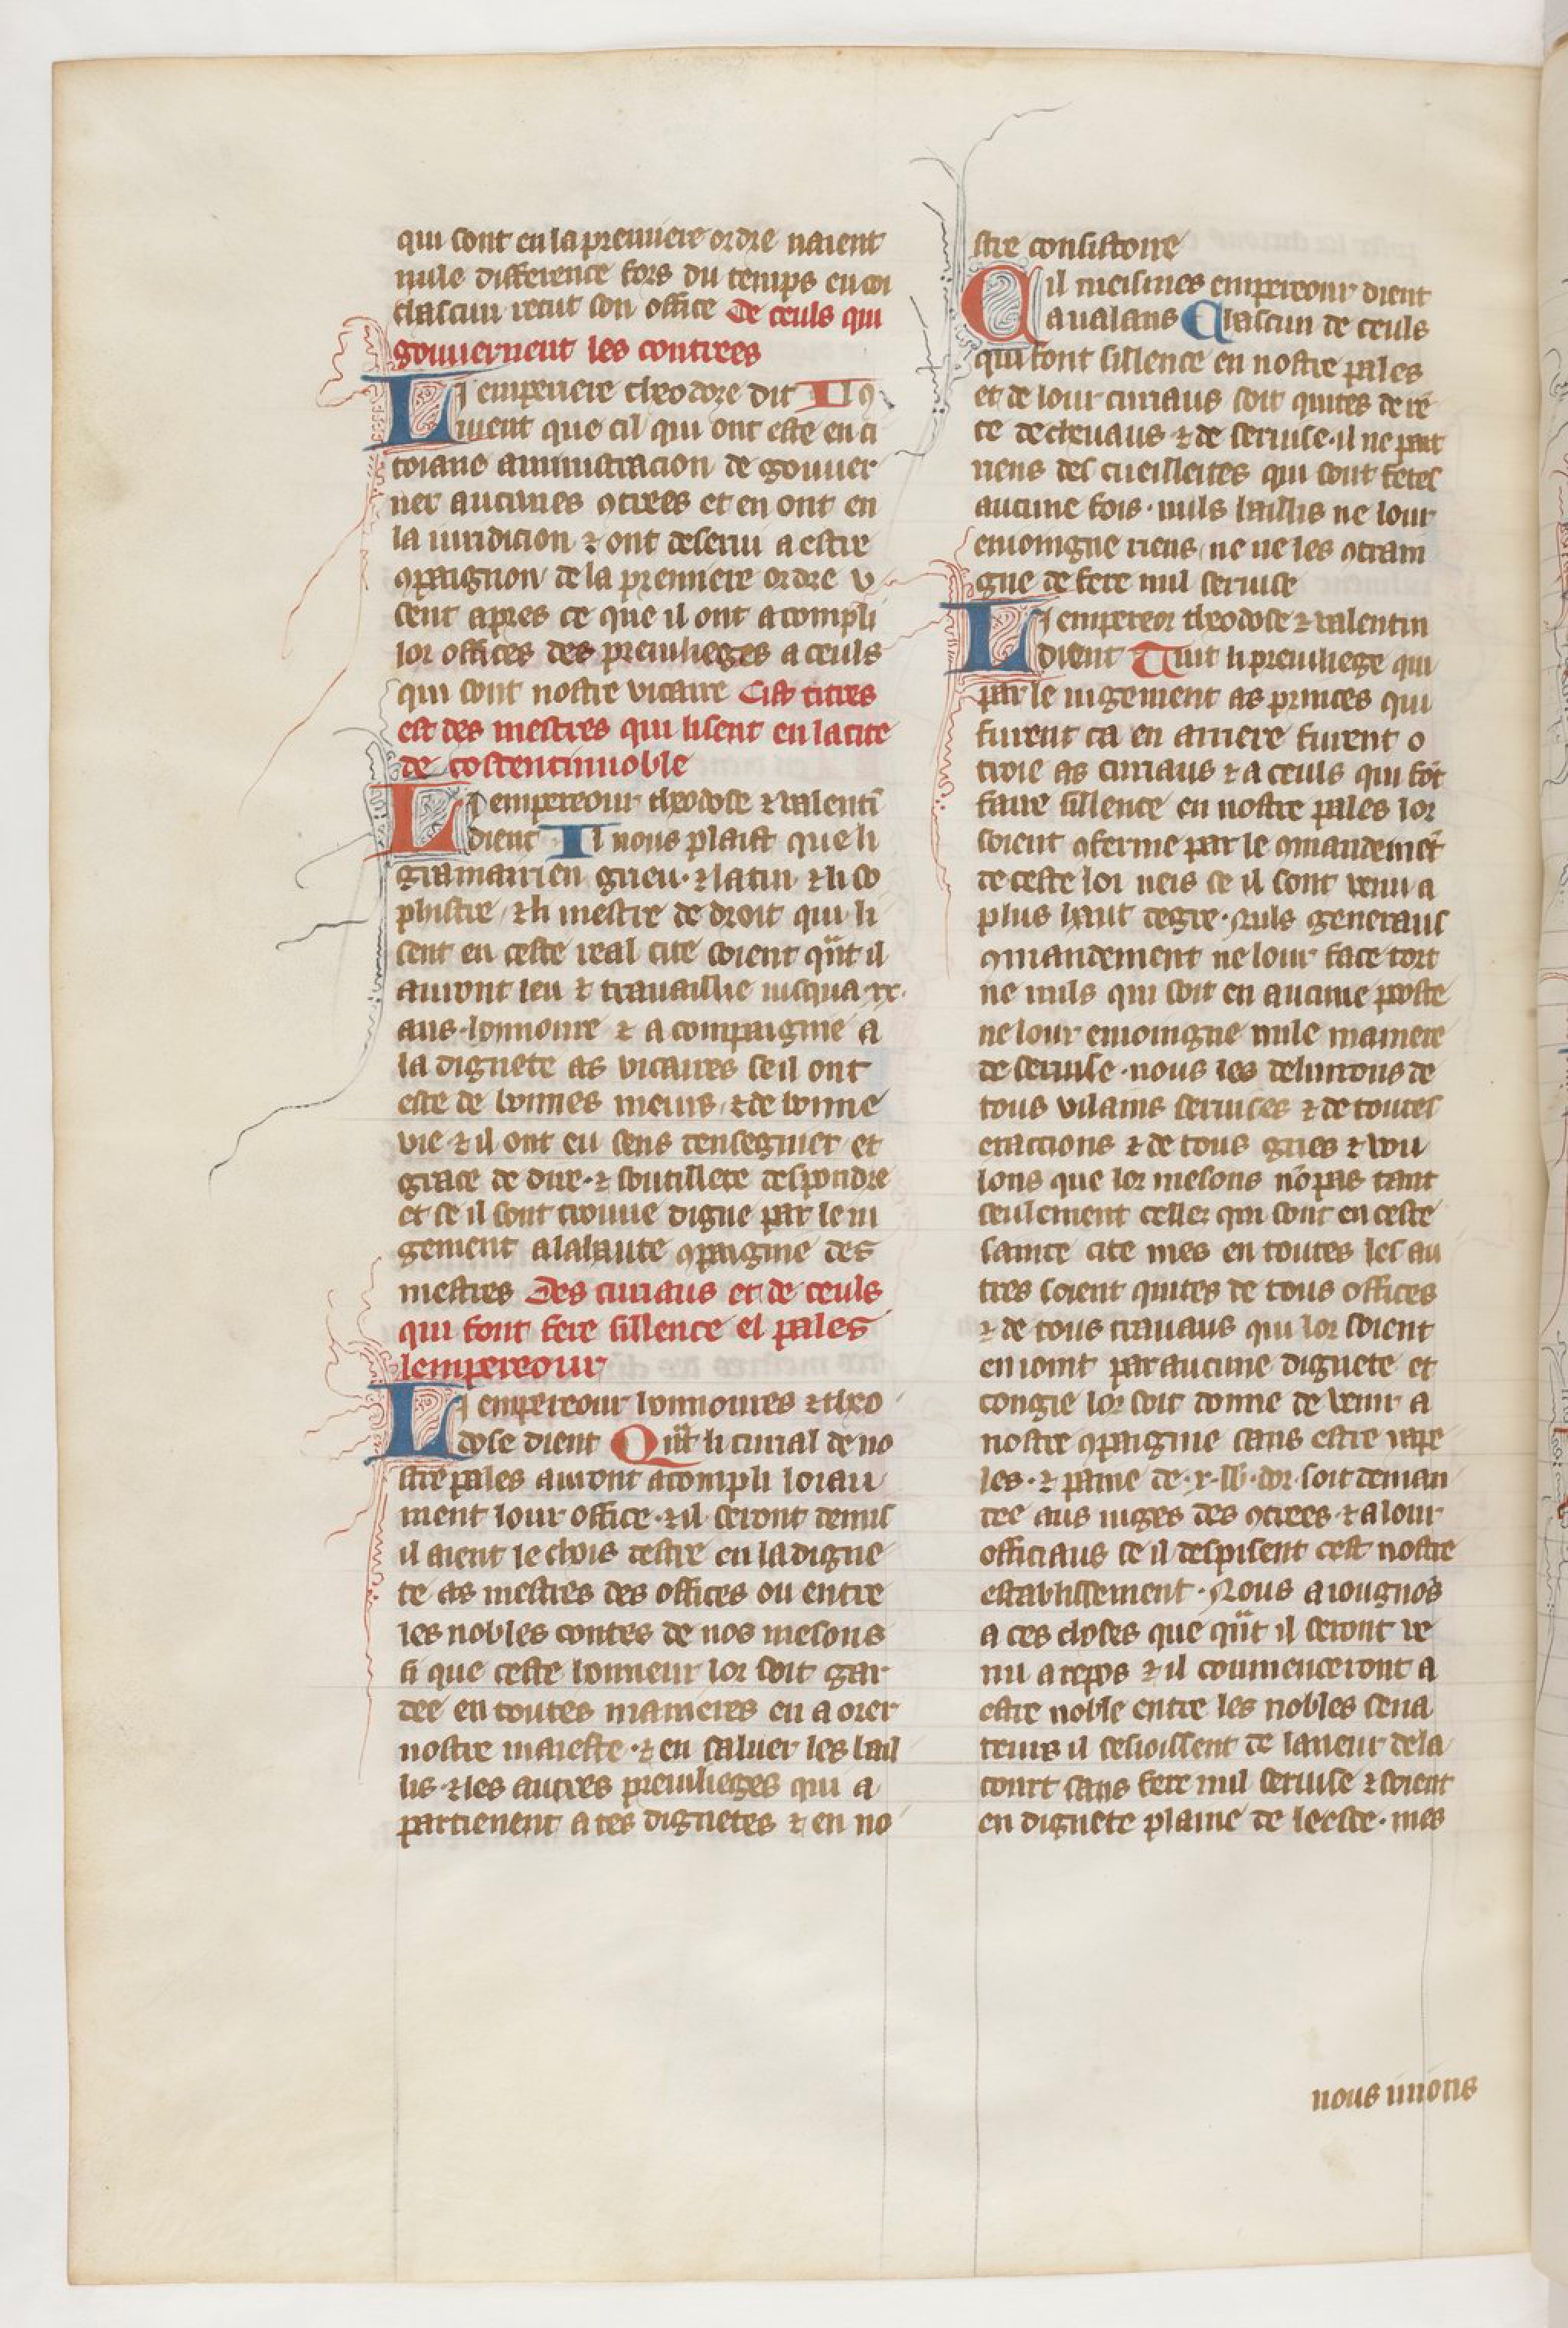 qui sont en la premiere ordre naient
nule difference fors du temps en coi
chascun recut son office De ceuls qui
gouuernent les contrees
Li emperiere theodore dit Il ꝯ
uient que cil qui ont este en ci
toiane aministracion de gouuer
ner aucunes ꝯtrees et en ont eu
la iuridicion ⁊ ont deserui a estre
ꝯpaignon de la premiere ordre v
sent apres ce que il ont acompli
lor offices des preuilieges a ceuls
qui sont nostre vicaire Cist titres
est des mestres qui lisent en la cite
de costentinnoble
Li empereour theodose ⁊ valenti̅
dient Il nous plaist que li
gramairien grieu · ⁊ latin ⁊ li so
phistre ⁊ li mestre de droit qui li
sent en ceste real cite soient qu̅t il
auront leu ⁊ trauaillie iusqua · xx ·
ans · honnoure ⁊ acompaignie a
la dignete as vicaires se il ont
este de bonnes meurs ⁊ de bonne
vie ⁊ il ont eu sens denseignier et
grace de dire · ⁊ soutillete despondre
et se il sont trouue digne par le iu
gement a la haute ꝯpaignie des
mestres Des curiaus et de ceuls
qui font fere sillence el pales
lempereour
Li empereour honnoures ⁊ theo
dose dient Qu̅t li curial de no
stre pales auront acompli loiau
ment lour office · ⁊ il seront demis
il aient le chois destre en la digne
te as mestres des offices ou entre
les nobles contes de nos mesons
si que ceste honneur lor soit gar
dee en toutes manieres en a orer
nostre maieste · ⁊ en saluer les bail
lis · ⁊ les autres preuilieges qui a
partienent a tes dignetes ⁊ en no
stre consistoire
Cil meismes empereour dient
a ualans Chascun de ceuls
qui font sillence en nostre pales
et de lour curiaus soit quites de re̅
te de cheuaus ⁊ de seruise · il ne prat
nens des cueilleites qui sont fetes
aucune fois · nuls baillis ne lour
enioingne riens ne ne les ꝯtrain
gne de fere nul seruice
Li empereor theodose ⁊ valentin
dient Tuit li preuiliege qui
par le iugement as princes qui
furent ca en arriere furent o
troie as curiaus ⁊ a ceuls qui fo̅t
faire sillence en nostre pales lor
soient ꝯferme par le ꝯmandeme̅t
de ceste loi neis se il sont venu a
plus haut degre · Nuls generaus
ꝯmandement ne lour face tort
ne nuls qui soit en aucune poste
ne lour enioingne nule maniere
de seruise · nous les deliurons de
tous vilains seruises ⁊ de toutes
exaccions ⁊ de tous gries ⁊ vou
lons que lor mesons no̅ pas tant
seulement celles qui sont en ceste
sainte cite mes en toutes les au
tres soient quites de tous offices
⁊ de tous trauaus qui lor soient
enioint par aucune dignete et
congie lor soit donne de venir a
nostre ꝯpaignie sans estre rape
les · ⁊ paine de · x · lb · dor · soit deman
dee aus iuges des ꝯtrees ⁊ a lour
officiaus se il despisent cest nostre
establissement · Nous aiougno̅s
a ces choses que qu̅t il seront ve
nu a repos ⁊ il commenceront a
estre noble entre les nobles sena
teurs il sesioissent de laneur de la
court sans fere nul seruise ⁊ soient
en dignete plaine de leesce · mes
nous uuons